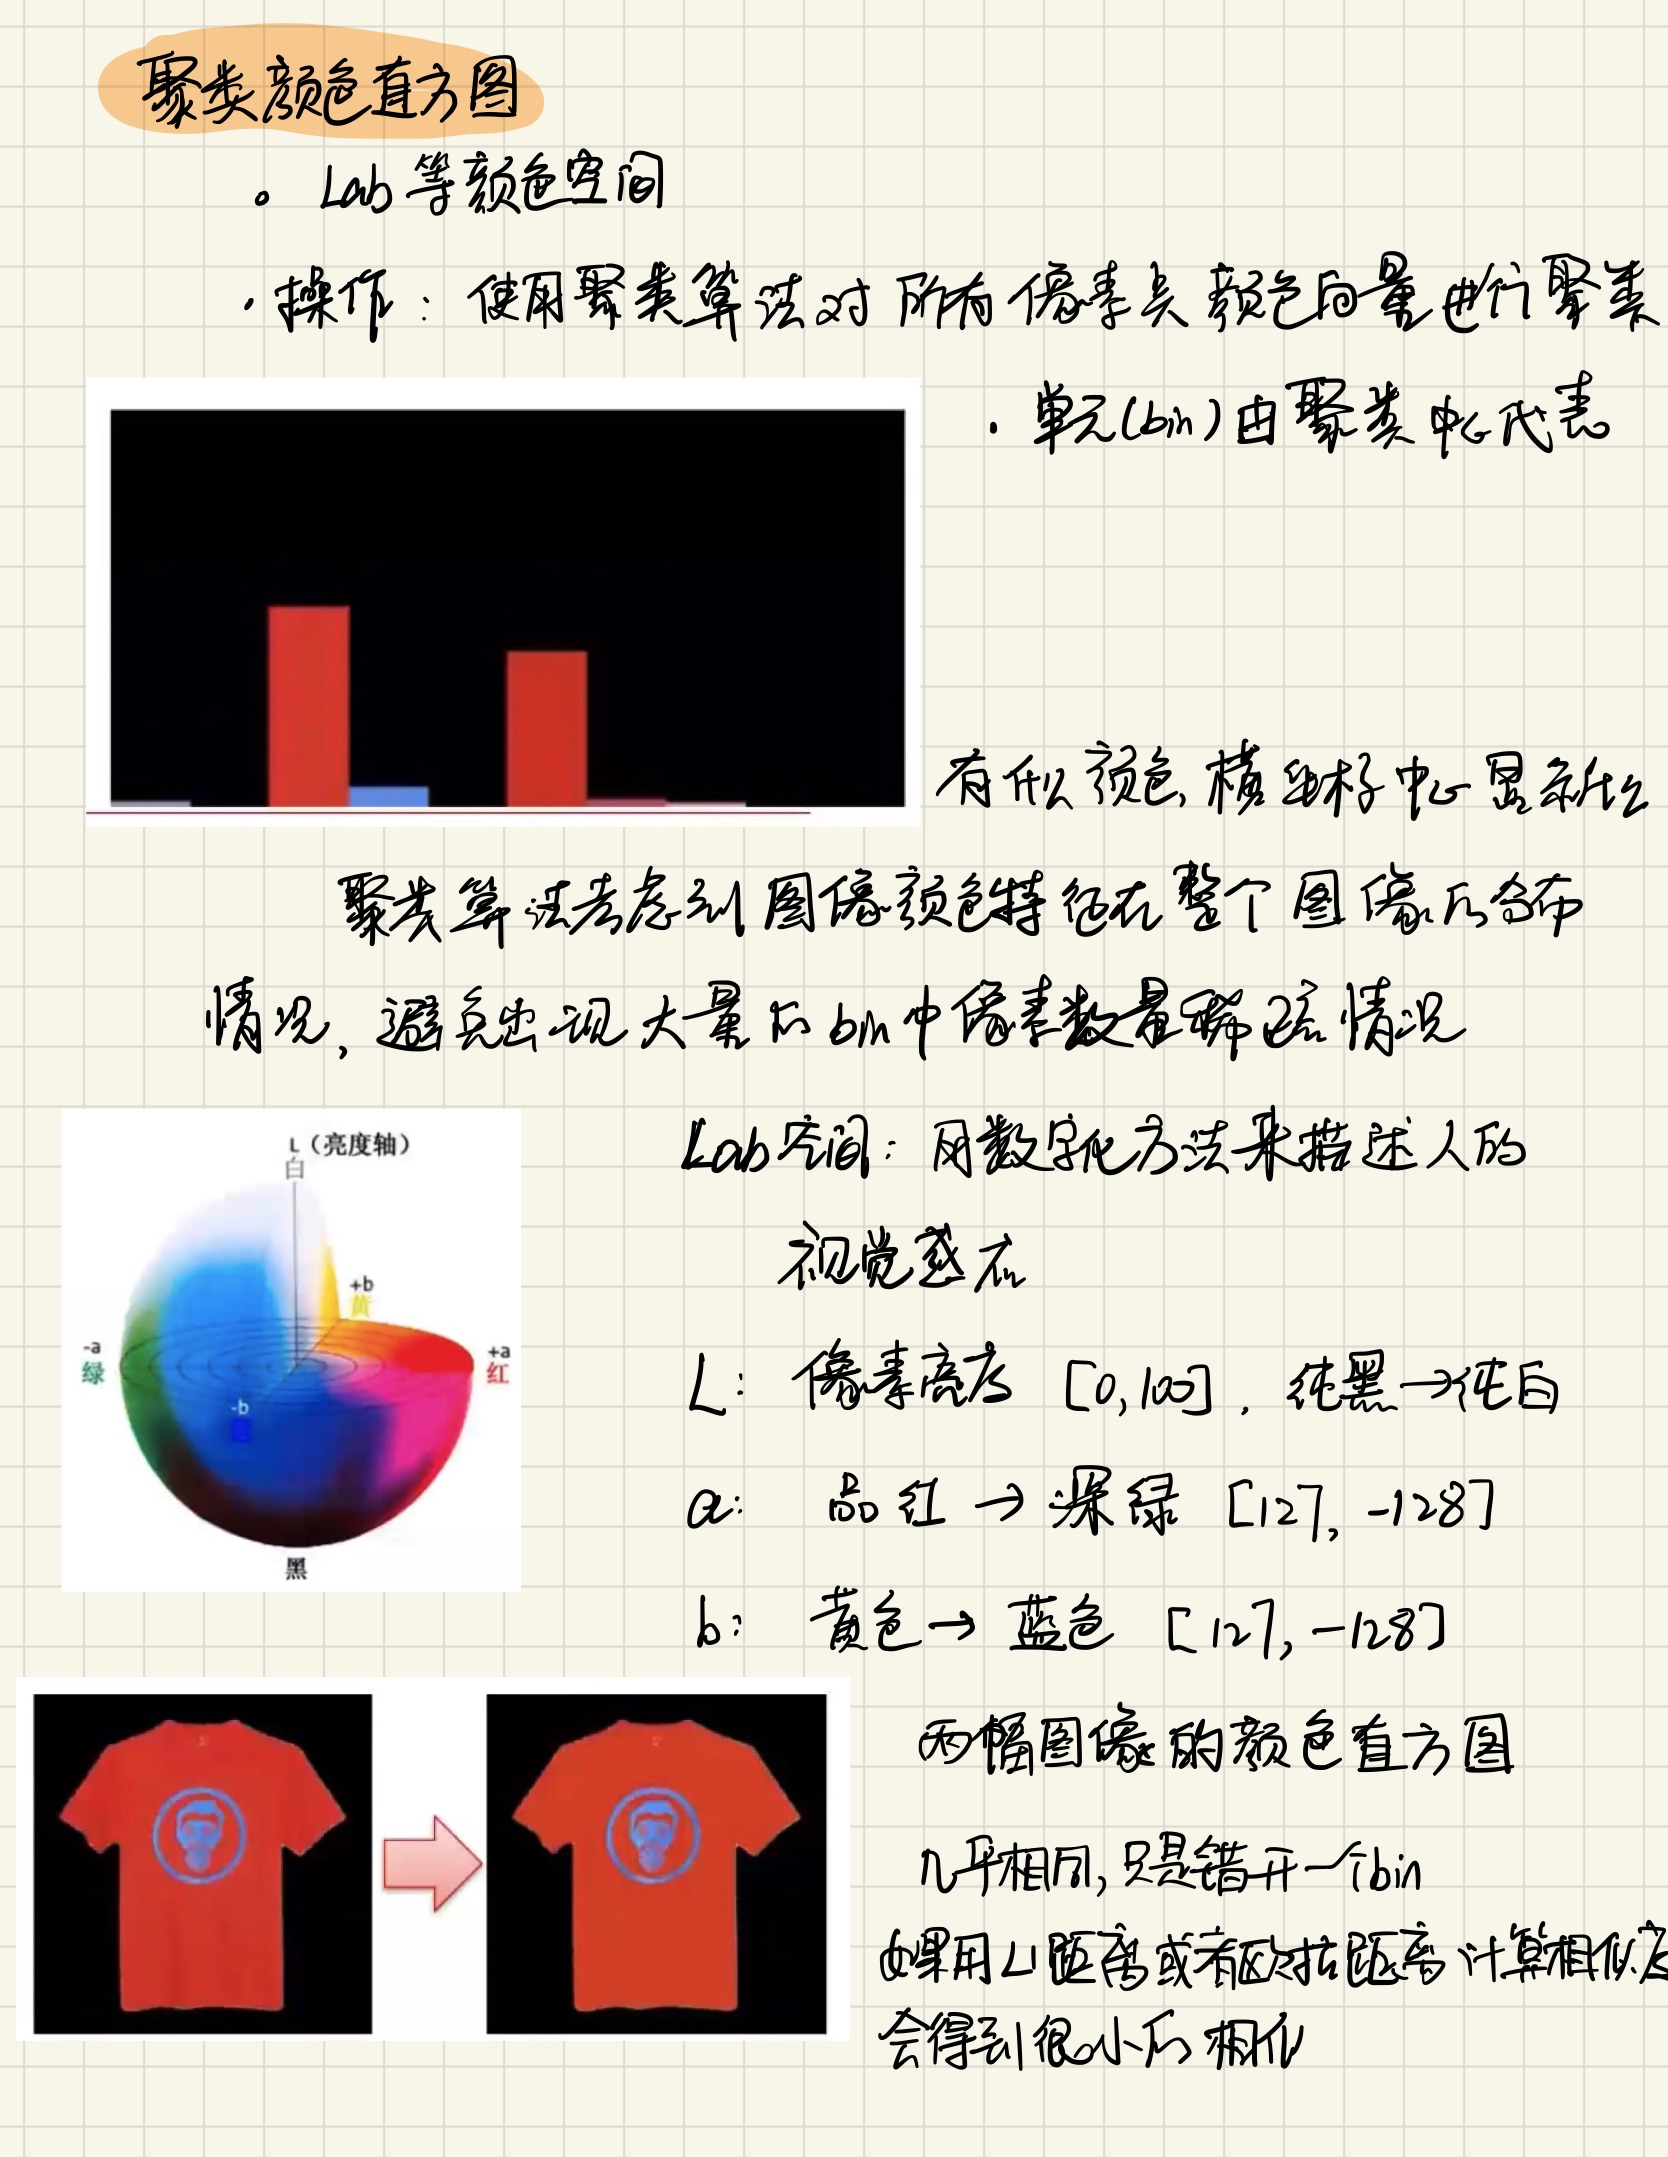 聚类颜色直方图
。 Lab等颜色空间
· 操作: 使用聚类算法对所有像素点颜色向量进行聚类
· 单元(bin)由聚类中心代表
有什么颜色, 横坐标中心显示什么
聚类算法考虑到图像颜色特征在整个图像的分布
情况, 避免出现大量的bin中像素数量稀疏情况
L（亮度轴）
白
+b
黄
-a
绿
+a
红
-b
黑
Lab空间: 用数字化方法来描述人的
视觉感应
L: 像素亮度 [0,100], 纯黑→纯白
a: 品红→深绿 [127, -128]
b: 黄色→蓝色 [127, -128]
两幅图像的颜色直方图
几乎相同, 只是错开一个bin
如果用L1距离或者欧拉距离计算相似度
会得到很小的相似